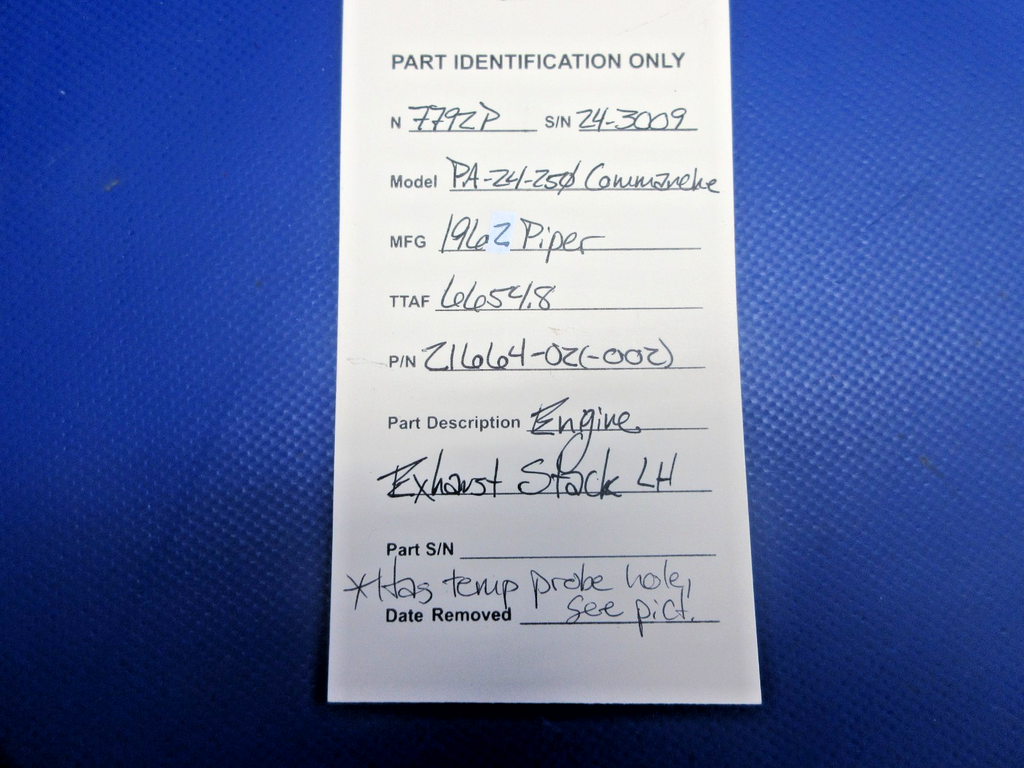 PART IDENTIFICATION ONLY
N 7792P S/N 24-3009
Model PA-24-250 Commanche
MFG 1962 Piper
TTAF 6654.8
P/N 21664-02(-002)
Part Description Engine
Exhaust Stack LH
Part S/N
*Has temp probe hole,
Date Removed see pict.